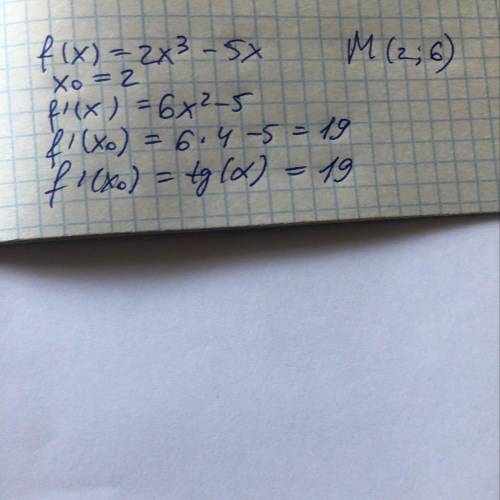 f(x) = 2x³ - 5x M(2;6)
x₀ = 2
f'(x) = 6x² - 5
f'(x₀) = 6 · 4 - 5 = 19
f'(x₀) = tg(α) = 19